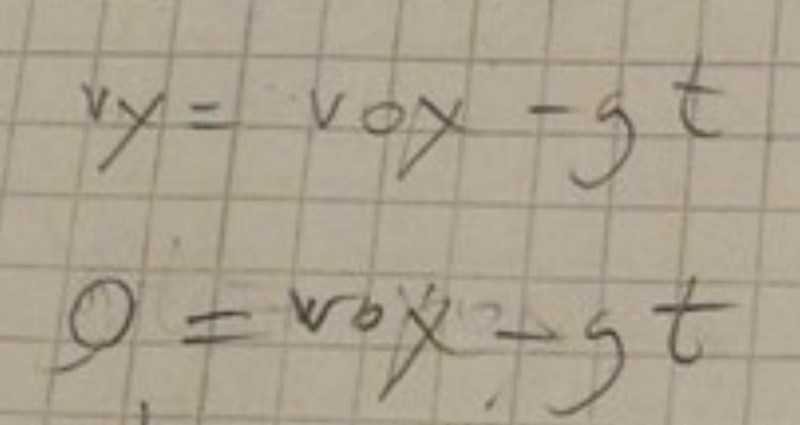 vy = voy - gt
0 = voy - gt